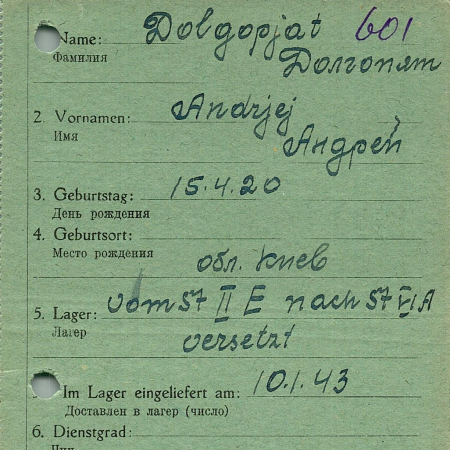 Name: Dolgopjat 601
Фамилия Долгопят
2. Vornamen: Andrjej
Имя Андрей
3. Geburtstag: 15.4.20
День рождения
4. Geburtsort:
Место рождения обл. Киев
5. Lager: vom St II E nach St VI A
Лагер versetzt
Im Lager eingeliefert am: 10.1.43
Доставлен в лагер (число)
6. Dienstgrad:
Чин